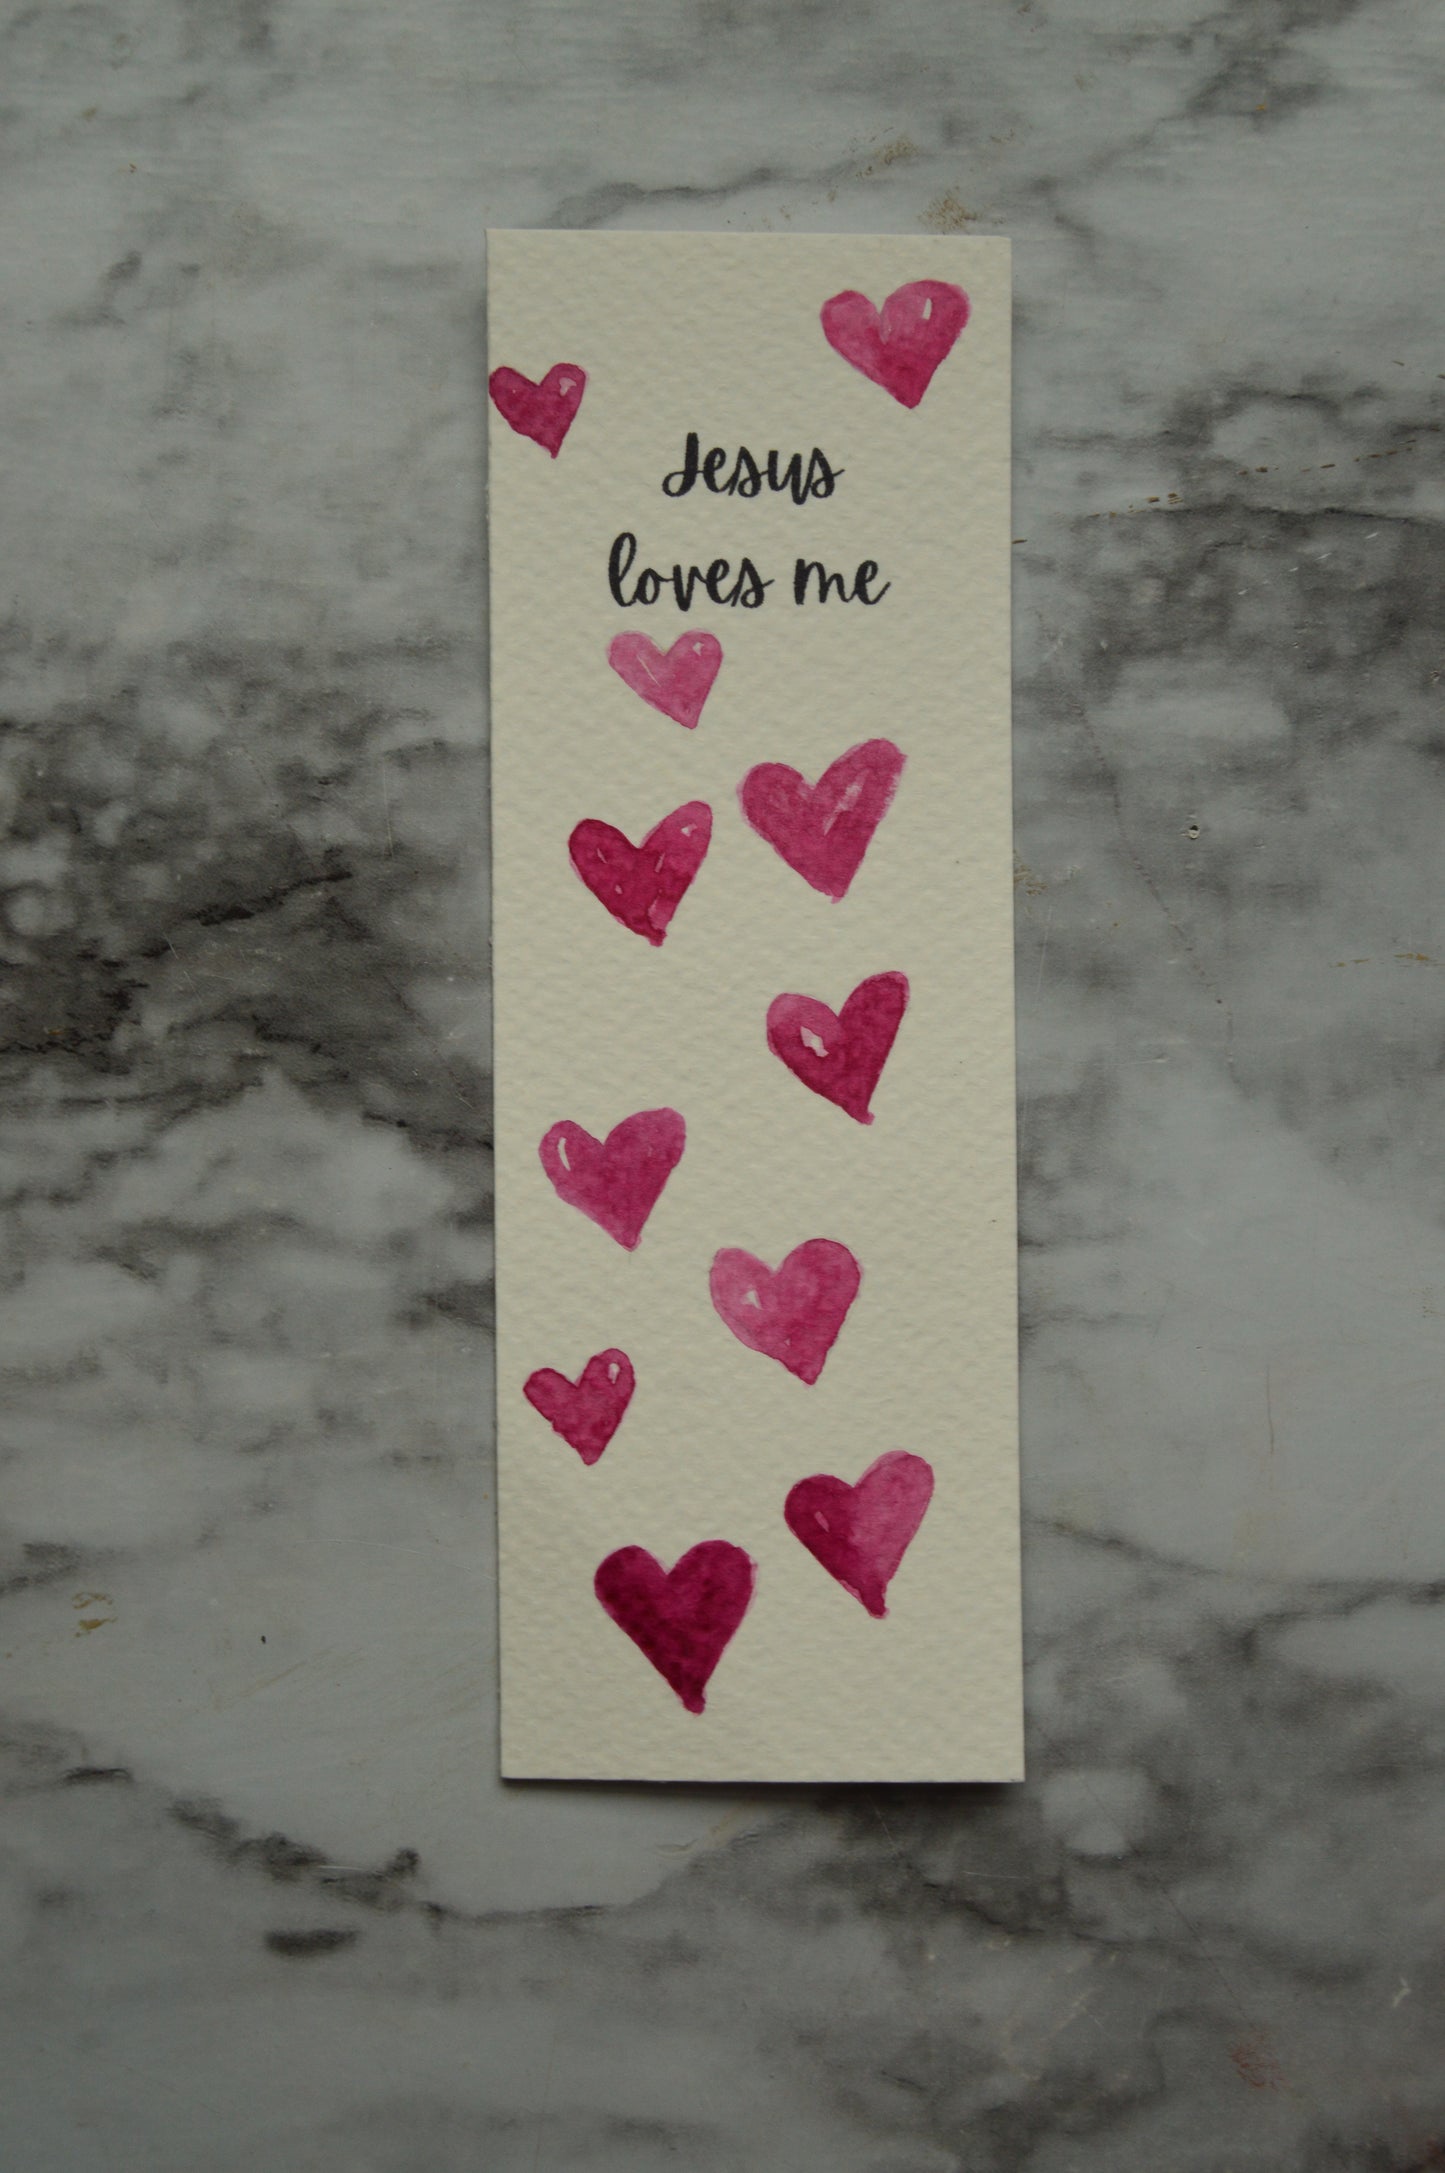 Jesus
loves me